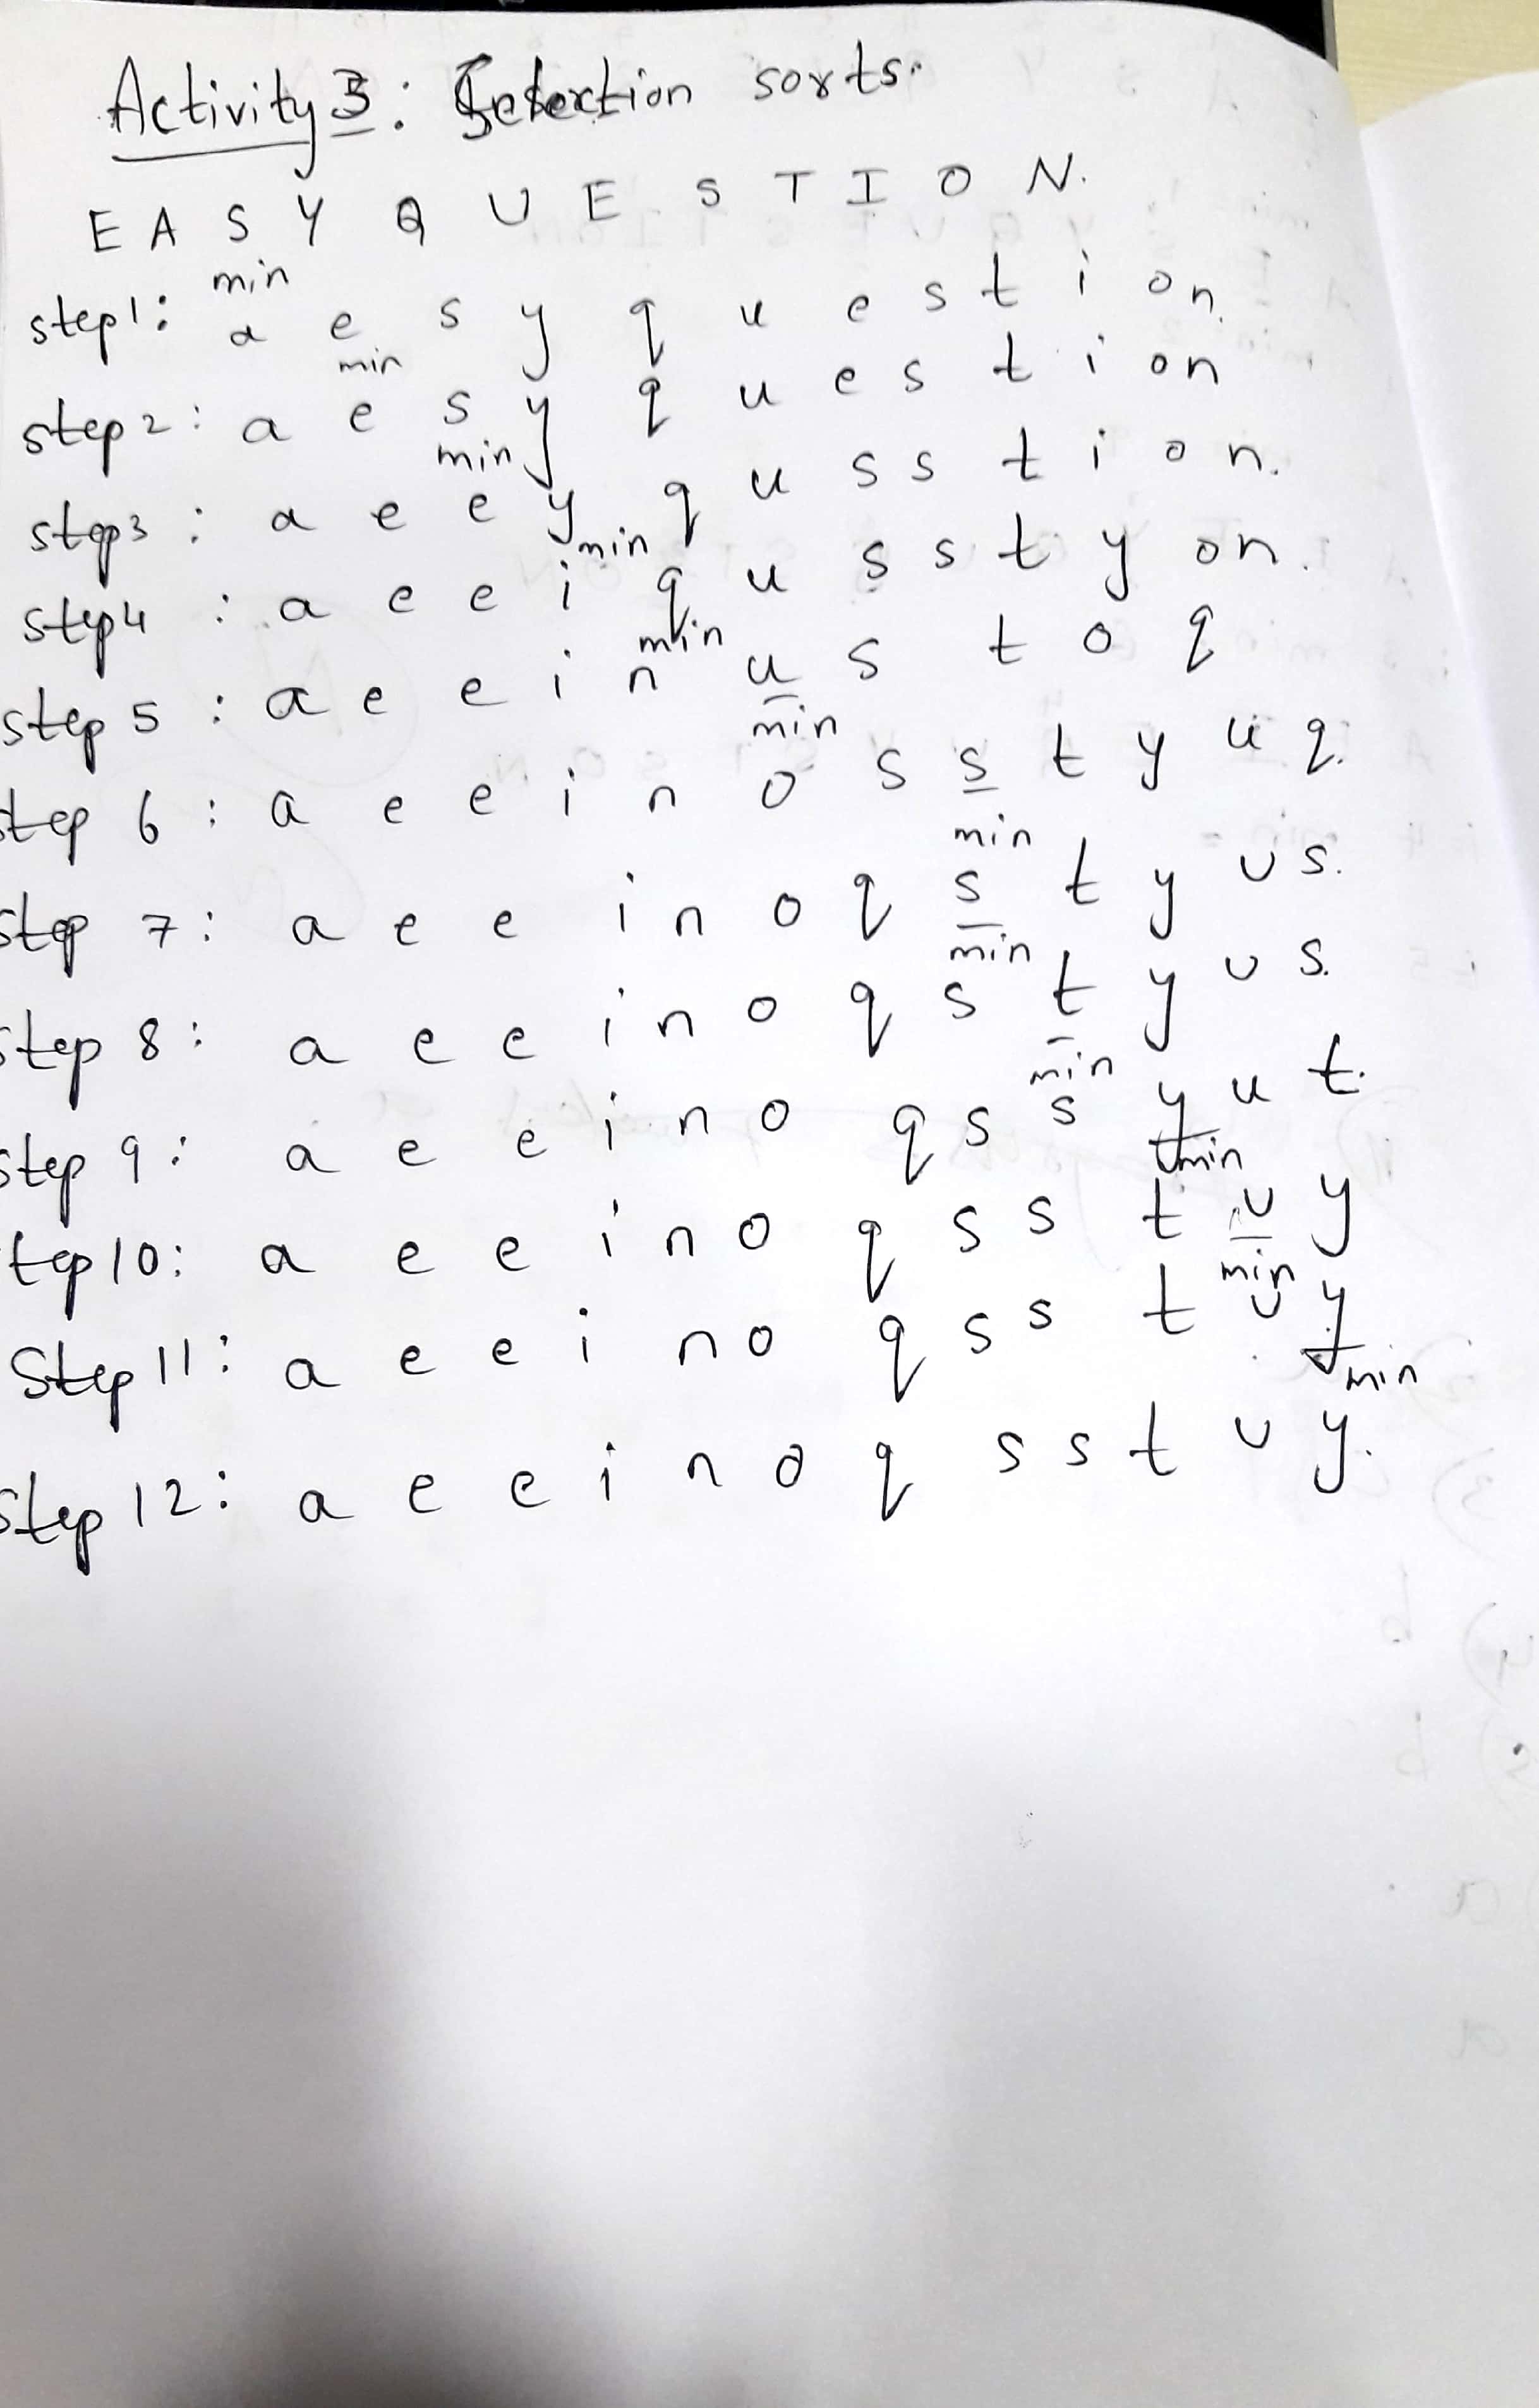 Activity 3: Selection sorts.
E A S Y Q U E S T I O N.
min
step1: a e s y q u e s t i o n.
min
step2: a e s y q u e s t i o n
min
step3: a e e y q u s s t i o n.
min
step4: a e e i q u s s t y o n.
min
step 5: a e e i n u s t o q
min
step 6: a e e i n o s s t y u q.
min
step 7: a e e i n o q s t y u s.
min
step 8: a e e i n o q s t y u s.
min
step 9: a e e i n o q s s y u t.
min
tep10: a e e i n o q s s t u y
min
Step 11: a e e i n o q s s t u y
min
step 12: a e e i n o q s s t u y.